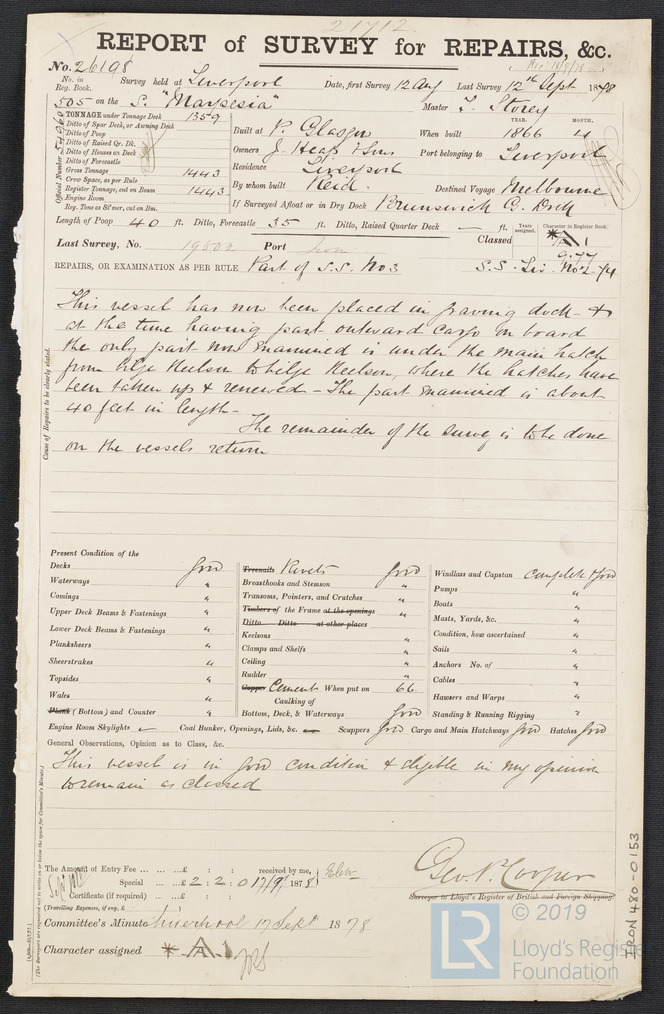 21712
REPORT of SURVEY for REPAIRS, &c.
No. 26198
No. in Reg. Book. Survey held at Liverpool Date, first Survey 12 Aug Last Survey 12th Sept 1878
505 on the S. "Marpesia" Master T. Storey
TONNAGE under Tonnage Deck 1359
Ditto of Spar Deck, or Awning Deck
Ditto of Poop
Ditto of Raised Qr. Dk.
Ditto of Houses on Deck
Ditto of Forecastle
Gross Tonnage 1443
Crew Space, as per Rule
Register Tonnage, cut on Beam 1443
Engine Room
Reg. Tons as St'mer, cut on Bm.
Official Number
YEAR. MONTH.
Built at P. Glasgow When built 1866 4
Owners J. Heap & Sons Port belonging to Liverpool
Residence Liverpool
By whom built Reid. Destined Voyage Melbourne
If Surveyed Afloat or in Dry Dock Brunswick G. Dock
Length of Poop 40 ft. Ditto, Forecastle 35 ft. Ditto, Raised Quarter Deck — ft.
Years assigned. Character in Register Book.
Last Survey, No. 19502 Port Classed A 1
9.77
REPAIRS, OR EXAMINATION AS PER RULE Part of S.S. No 3 S.S. Liv. No 2-74
Cause of Repairs to be clearly stated.
This vessel has now been placed in graving dock - &
at the time having part outward cargo on board
the only part now examined is under the main hatch
from bilge Keelson to bilge Keelson, where the hatches have
been taken up & renewed - The part examined is about
40 feet in length -
The remainder of the survey is to be done
on the vessels return
Present Condition of the
Decks Good
Waterways "
Comings "
Upper Deck Beams & Fastenings "
Lower Deck Beams & Fastenings "
Planksheers "
Sheerstrakes "
Topsides "
Wales "
Plank (Bottom) and Counter "
Treenails Rivets Good
Breasthooks and Stemson "
Transoms, Pointers, and Crutches "
Timbers of the Frame at the openings "
Ditto Ditto at other places
Keelsons "
Clamps and Shelfs "
Ceiling "
Rudder "
Copper Cement When put on 66
Caulking of
Bottom, Deck, & Waterways Good
Windlass and Capstan Complete & Good
Pumps "
Boats "
Masts, Yards, &c. "
Condition, how ascertained "
Sails "
Anchors No. of "
Cables "
Hawsers and Warps "
Standing & Running Rigging "
Engine Room Skylights — Coal Bunker, Openings, Lids, &c. — Scuppers Good Cargo and Main Hatchways Good Hatches Good
General Observations, Opinion as to Class, &c.
This vessel is in good condition & eligible in my opinion
to remain as classed
The Amount of Entry Fee ... ... ...£ : : received by me,
Special ... ...£ 2 : 2 : 0 17/9/1878
Certificate (if required) ... £ : :
(Travelling Expenses, if any, £ )
Geo. P. Cooper
Surveyor to Lloyd's Register of British and Foreign Shipping.
Committee's Minute Liverpool 17 Sept 1878
Character assigned A 1
(The Surveyors are requested not to write on or below the space for Committee's Minute.)
IRON 480-0153
LR
© 2019
Lloyd's Register
Foundation